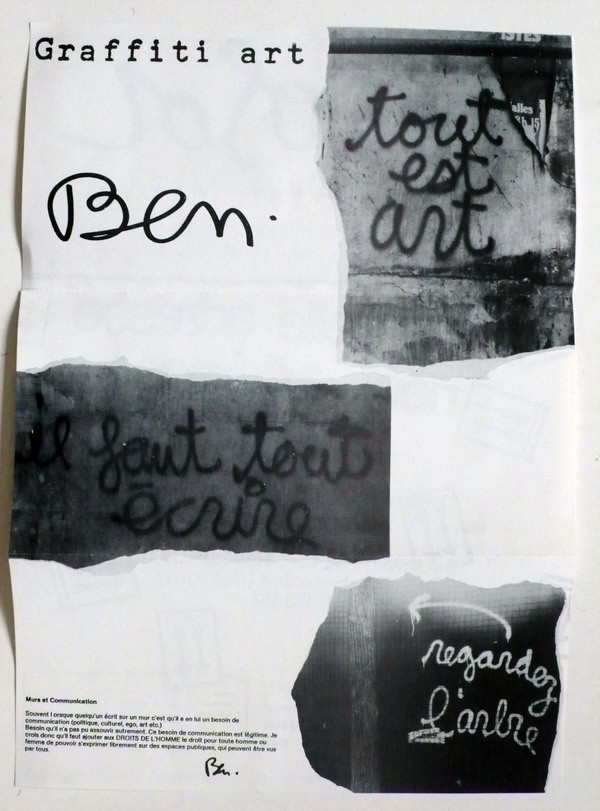 Graffiti art
Ben.
alles
tout
est
art
il faut tout
écrire
regardez
l'arbre
Murs et Communication
Souvent lorsque quelqu'un écrit sur un mur c'est qu'il a en lui un besoin de
communication (politique, culturel, ego, art etc.)
Besoin qu'il n'a pas pu assouvir autrement. Ce besoin de communication est légitime. Je
crois donc qu'il faut ajouter aux DROITS DE L'HOMME le droit pour toute homme ou
femme de pouvoir s'exprimer librement sur des espaces publiques, qui peuvent être vus
par tous.
Ben.